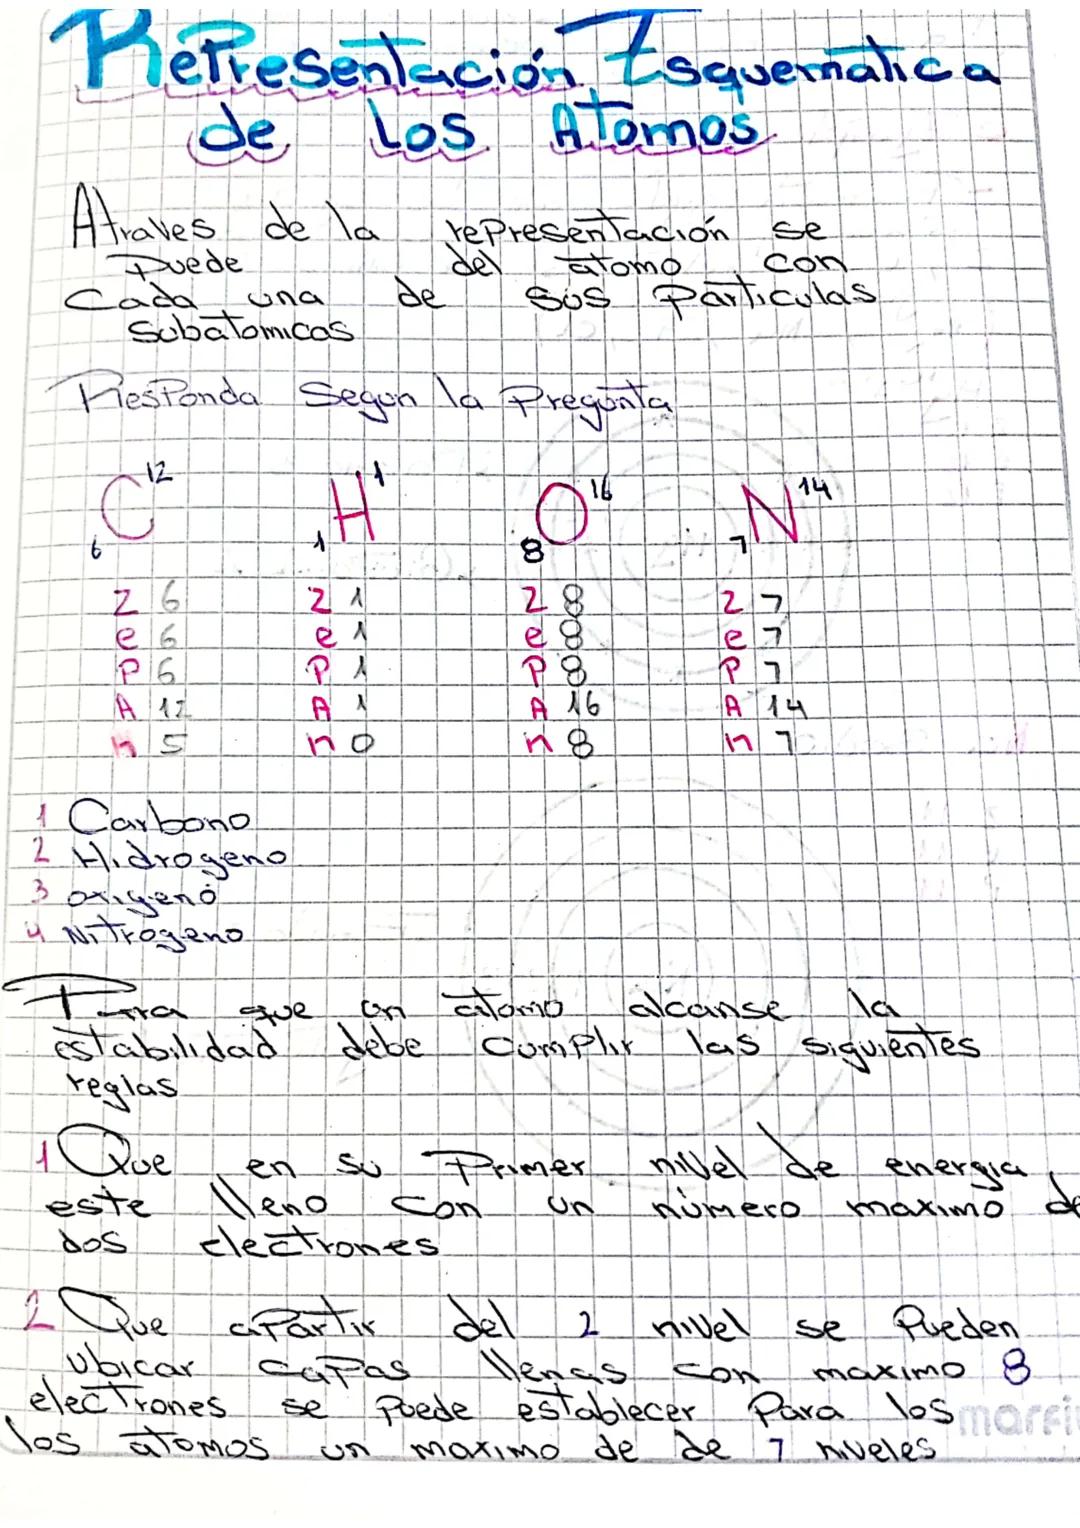 Representación Esquematica
de Los Atomos
Atraves de la representación se
Puede del atomo con
Cada una de sus Particulas
subatomicas
Responda Segun la Pregunta
C 12 H 1 O 16 N 14
6 1 8 7
Z 6 Z 1 Z 8 Z 7
e 6 e 1 e 8 e 7
P 6 P 1 P 8 P 7
A 12 A 1 A 16 A 14
n 5 n 0 n 8 n 7
1 Carbono
2 Hidrogeno
3 oxigeno
4 Nitrogeno
Para que un atomo alcanse la
estabilidad debe cumplir las siguientes
reglas
1 Que en su Primer nivel de energia
este lleno con un número maximo de
dos electrones
2 Que apartir del 2 nivel se Pueden
ubicar capas llenas con maximo 8
electrones se puede establecer Para los
los atomos un maximo de de 7 niveles